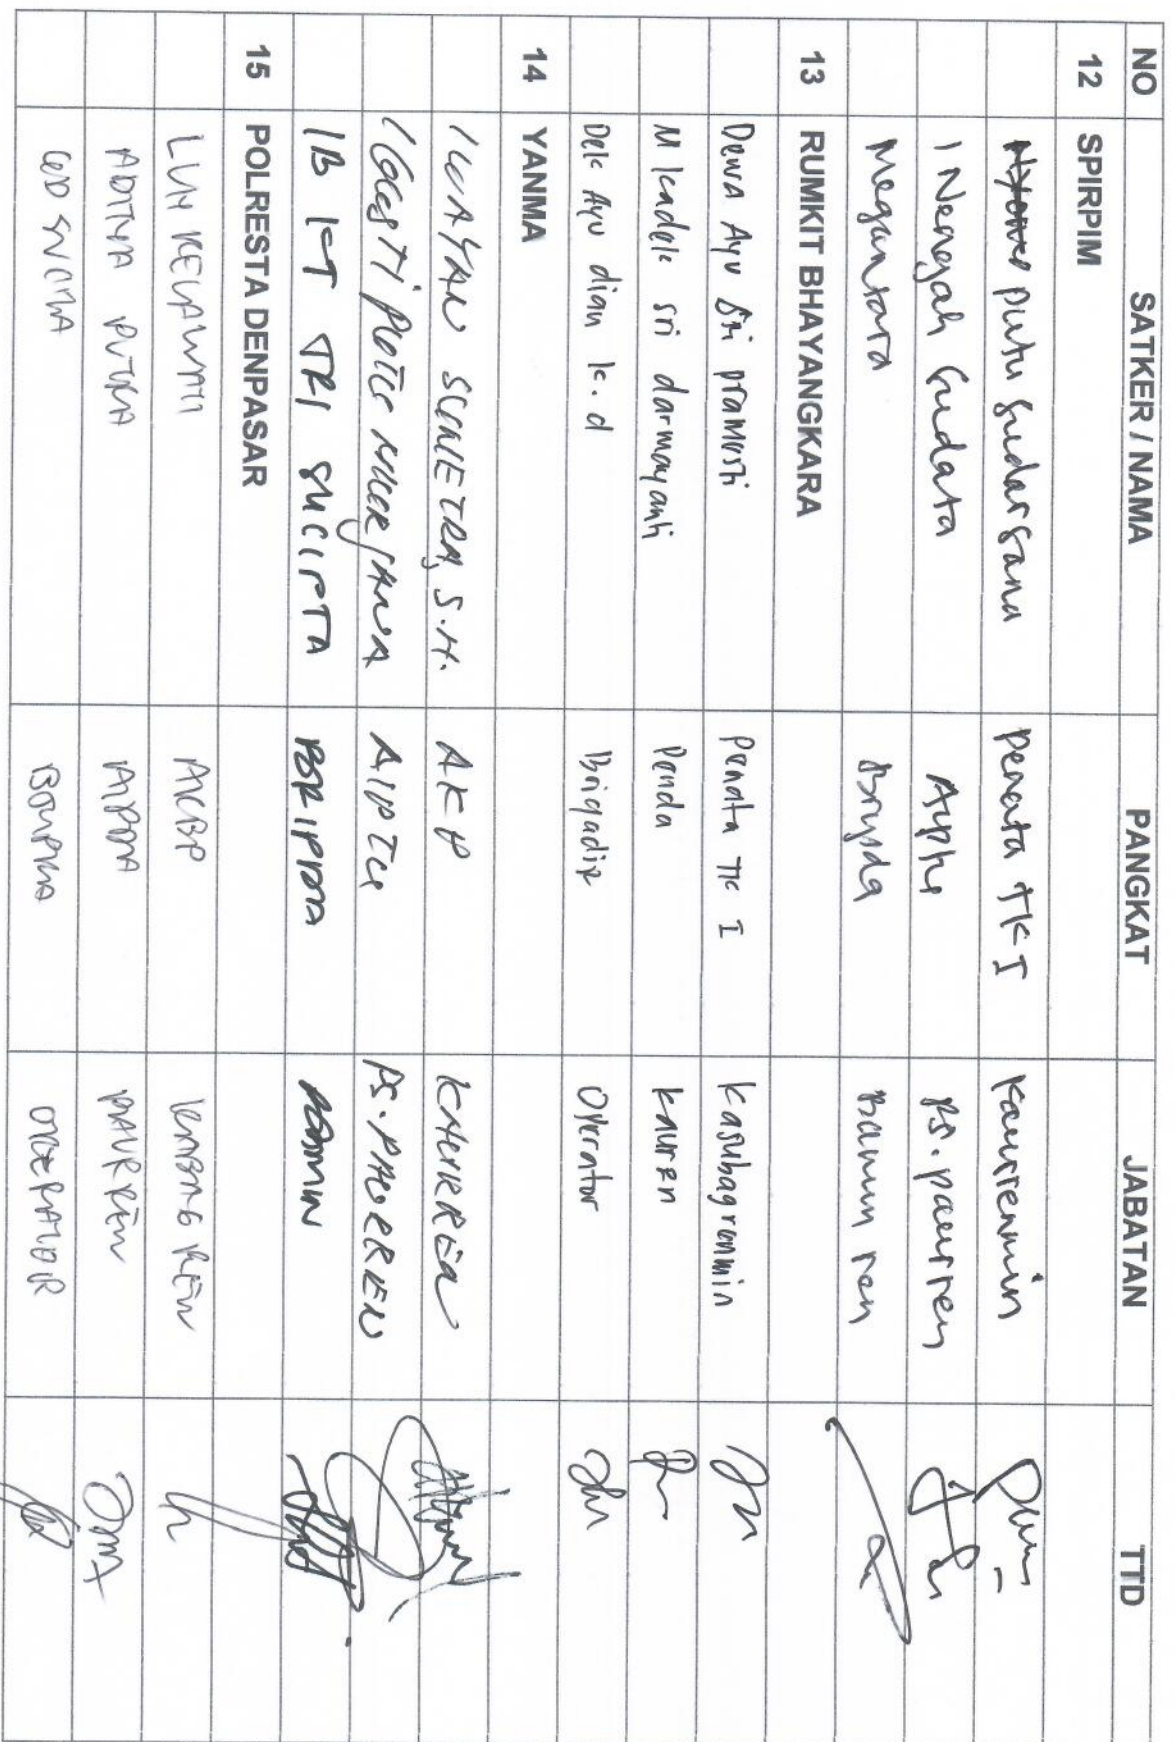 NO SATKER / NAMA PANGKAT JABATAN TTD
12 SPIRPIM
Putu Sudarsana Penata TK I Kaurrenmin
I Nengah Sudata Aiptu PS. paurren
Megantara Bripda Bamin ren
13 RUMKIT BHAYANGKARA
Dewa Ayu Sri pramesti Penata TK I Kasubagrenmin
N Kadek sri darmayanti Penda Kauren
Dek Ayu dian k.d Brigadir Operator
14 YANMA
I WAYAN SUWETRA, S.H. AKP KAURREN
I GUSTI PUTU AIPTU PS. PAURREN
IB KT TRI SUCIPTA BRIPDA ADMIN
15 POLRESTA DENPASAR
LUH KECAWATI AKBP KABAG REN
ADITYA PUTRA AIPDA PAURREN
OPERATOR